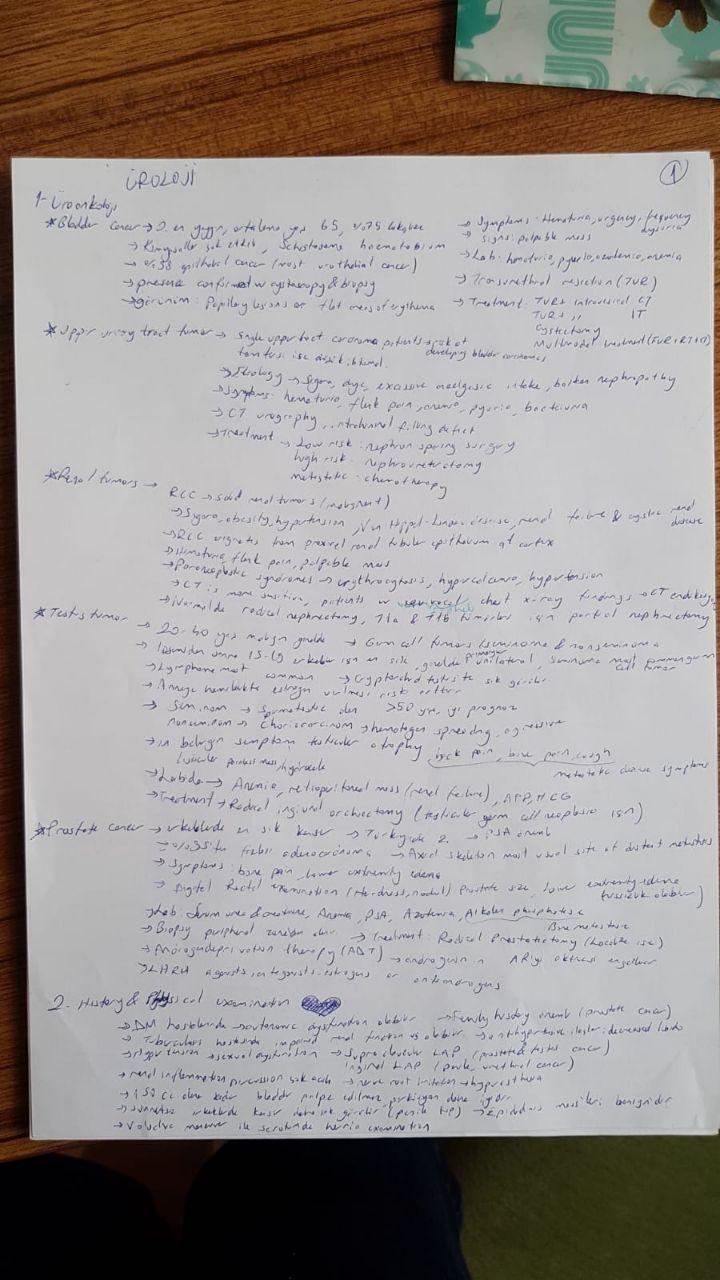 UNI
ÜROLOJİ
1
1- Üroonkoloji
* Bladder cancer → 2. en yaygın, ortalama yaş 65, %75 lokalize
→ Kimyasallar çok etkili, Schistosoma haematobium
→ %98 epithelial cancer (most urothelial cancer)
→ presence confirmed w cystoscopy & biopsy
→ görünüm: Papillary lesions or flat areas of erythema
→ Symptoms: Hematuria, urgency, frequency
dysuria
→ Signs: palpable mass
→ Lab: hematuria, pyuria, azotemia, anemia
→ Transurethral resection (TUR)
→ Treatment: TUR + intravesical CT
TUR + " IT
Cystectomy
Multimodel treatment (TUR+RT+CT)
* Upper urinary tract tumor → Single upper tract carcinoma patients → risk of
developing bladder carcinomas
tam tersi ise düşük ihtimal.
→ Etiology → Sigara, dye, excessive analgesic intake, balkan nephropathy
→ Symptoms: hematuria, flank pain, anemia, pyuria, bacteriuria
→ CT urography, intraluminal filling defect
→ Treatment → Low risk: nephron sparing surgery
high risk: nephroureterectomy
metastatic: chemotherapy
* Renal tumors →
RCC → solid renal tumors (malignant)
→ Sigara, obesity, hypertension, Von Hippel-Lindau disease, renal failure & cystic renal
disease
→ RCC originates from proximal renal tubular epithelium of cortex
→ Hematuria, flank pain, palpable mass
→ Paraneoplastic syndromes → erythrocytosis, hypercalcemia, hypertension
→ CT is more sensitive, patients w equivocal chest x-ray findings → CT
→ Normalde radical nephrectomy, T1a & T1b tümörler için partial nephrectomy
* Testis tumor → 20-40 yaş malign genelde → Germ cell tumors (seminoma & nonseminoma
→ 15-19 erkekler için en sık, genelde primary unilateral, Seminoma most common germ
cell tumor
→ Lymphoma most common → Cryptorchid testiste sık görülür
→ Anneye hamilelikte estrogen verilmesi riski arttırır
→ Seminom → Spermatositic olan >50 yaş, iyi prognoz
nonseminom → Choriocarcinom → hematogen spreading, agressive
→ en belirgin semptom testicular atrophy back pain, bone pain, cough
metastatic disease symptoms
testicular painless mass/hydrocele
→ Labda → Anemia, retroperitoneal mass (renal failure), AFP, HCG
→ Treatment → Radical inguinal orchiectomy (testicular germ cell neoplasia için)
* Prostate cancer → erkeklerde en sık kanser → Türkiyede 2. → PSA önemli
→ %95'ten fazlası adenocarcinoma → Axial skeleton most usual site of distant metastasis
→ Symptoms: bone pain, lower extremity edema
→ Digital Rectal Examination (Hardness, nodul) Prostate size, lower extremity edema
→ Lab: Serum urea & creatinine, Anemia, PSA, Azotemia, Alkalen phosphatase
Bone metastase
→ Biopsy peripheral zonedan alınır. → Treatment: Radical Prostatectomy (Localize ise)
→ Androgen deprivation therapy (ADT) → androgenin AR'yi aktivasi engeller
→ LHRH agonists, antagonists, estrogens or antiandrogens
2. History & Physical examination
→ DM hastalarında → autonomic dysfunction olabilir → Family history önemli (prostate cancer)
→ Tuberculous hastasında impaired renal function vs olabilir → antihypertensive ilaçlar: decreased libido
→ Hypertension → sexual dysfunction → Supraclavicular LAP (prostate & testis cancer)
inguinal LAP (penile, urethral cancer)
→ renal inflammation percussion → nerve root irritation → hyperesthesia
→ 150 cc olana kadar bladder palpe edilmez perküsyon daha iyidir
→ Sünnetsiz erkeklerde kanser daha sık görülür (penile tip) → Epididimis massleri benigndir
→ Valsalva maneuver ile scrotumda hernia examination